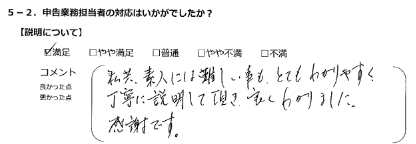 5－2．申告業務担当者の対応はいかがでしたか？
【説明について】
☑満足 □やや満足 □普通 □やや不満 □不満
コメント
良かった点
悪かった点
私共、素人には難しい事も、とてもわかりやすく
丁寧に説明して頂き、良くわかりました。
感謝です。